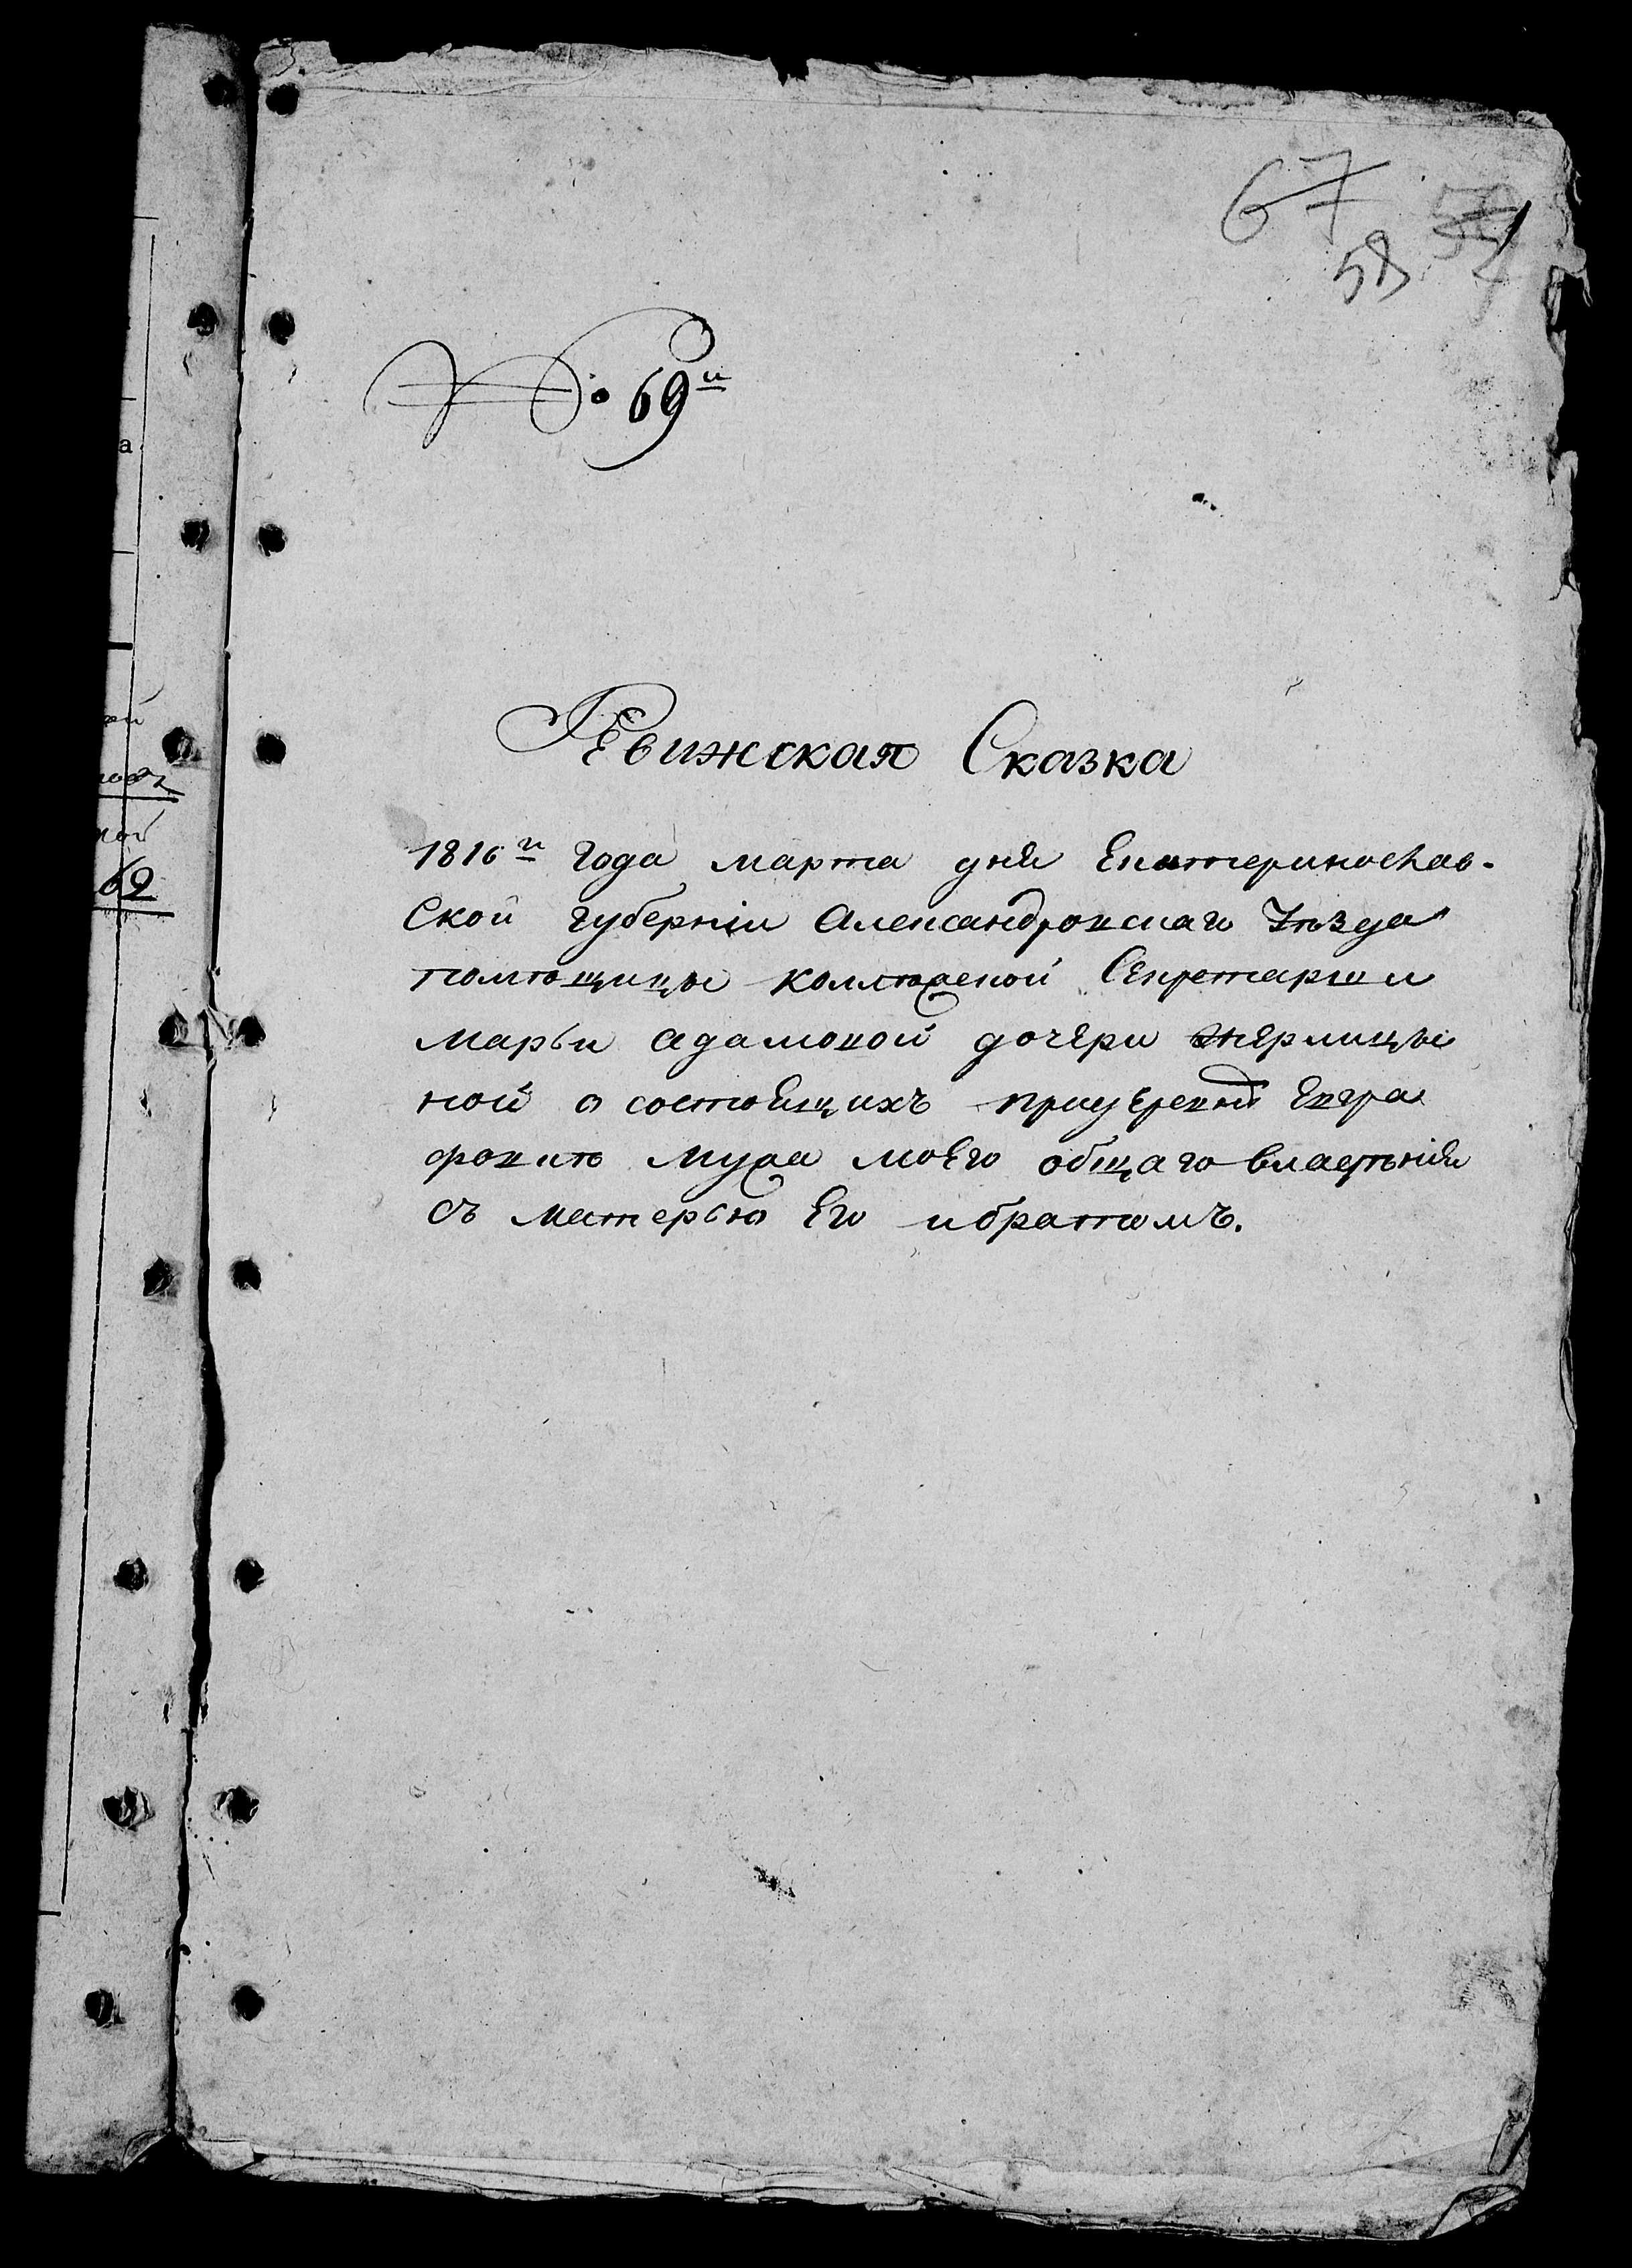 67
58
№ 69й
Ревижская Сказка
1816го года марта дня Екатеринослав-
Ской губерніи Александровскаго Уѣзда
помѣщицы коллежской Секретарши
марьи адамовой дочери
ной о состоящихъ Евгра
фовить мужа моего общаго владѣнія
съ матерью Его и братомъ.
ной
69